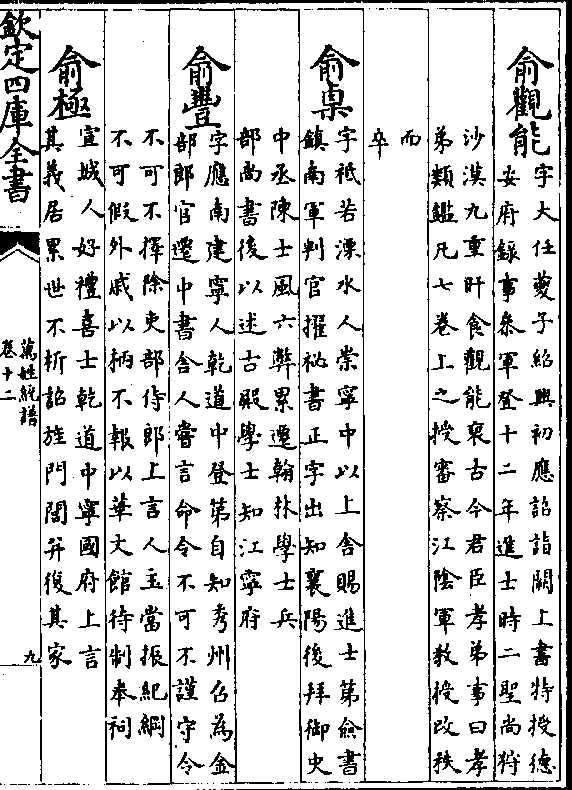 俞觀能
字大任夔子紹興初應詔詣闕上書特授德
安府錄事參軍登十二年進士時二聖尚狩
沙漠九重旰食觀能裒古今君臣孝弟事曰孝
弟類鑑凡七卷上之授審察江陰軍教授改秩
而
卒
俞㮚
字祗若溧水人崇寧中以上舍賜進士第僉書
鎮南軍判官擢祕書正字出知襄陽後拜御史
中丞陳士風六弊累遷翰林學士兵
部尚書後以述古殿學士知江寧府
俞豐
字應南建寧人乾道中登第自知秀州召為金
部郎官遷中書舍人嘗言命令不可不謹守令
不可不擇除吏部侍郎上言人主當振紀綱
不可假外戚以柄不報以華文館待制奉祠
俞極
宣城人好禮喜士乾道中寧國府上言
其義居累世不析詔旌門閭并復其家
欽定四庫全書
萬姓統譜
卷十二
九